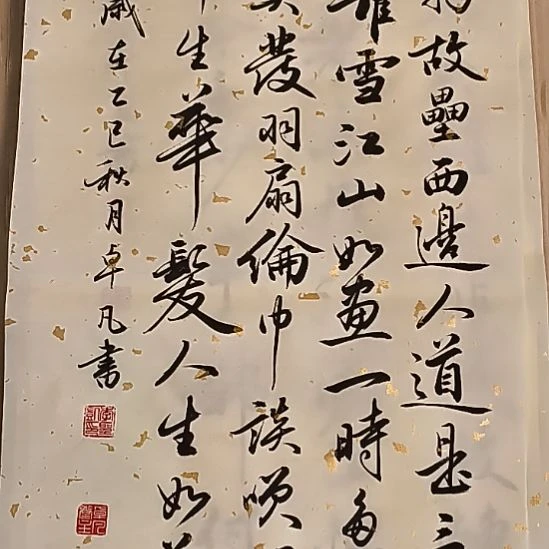 物故壘西邊人道是三
雪江山如畫一時多
發羽扇綸巾談
生華髮人生如
歲在乙巳秋月卓凡書